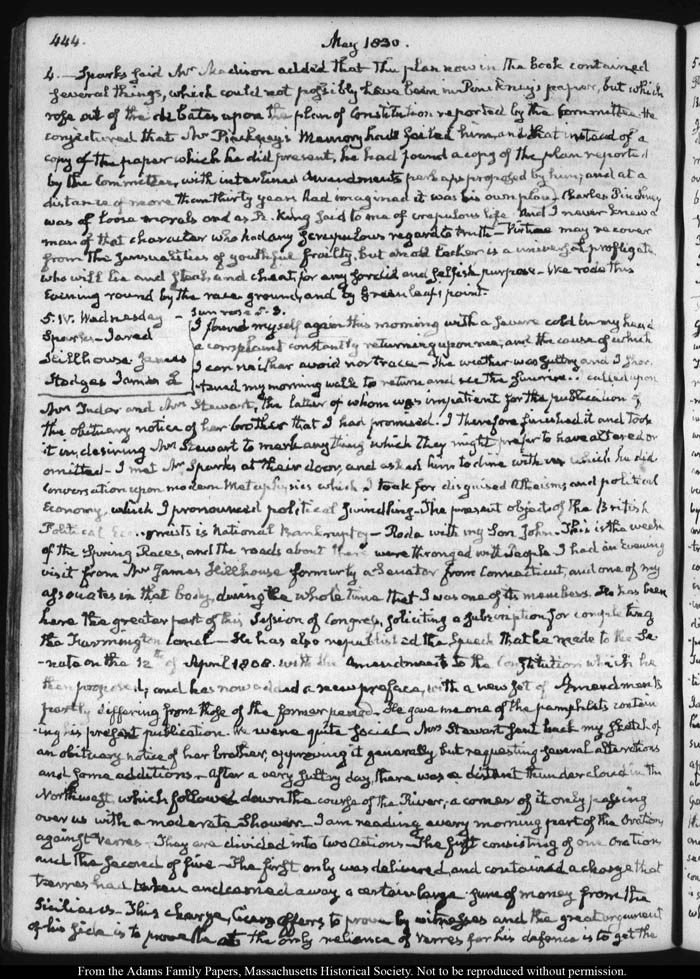 444.
May 1830.
4.— Sparks said Mr Madison added that the plan now in the book contained
several things, which could not possibly have been in Pinckney's paper, but which
rose out of the debates upon the plan of Constitution reported by the Committee. He
conjectured that Mr Pinckney's Memory had failed him, and that instead of a
copy of the paper which he did present, he had found a copy of the plan reported
by the Committee, with interlined Amendments perhaps proposed by him; and at a
distance of more than thirty years had imagined it was his own plan. Charles Pinckney
was of loose morals and as R. King said to me of crapulous life. And I never knew a
man of that character who had any scrupulous regard to truth— Virtue may recover
from the sensualities of youthful frailty, but an old lecher is a universal profligate
who will lie and steal and cheat for any sordid and selfish purpose— We rode this
Evening round by the race ground, and by Greenleaf's point.
5. IV. Wednesday — Sun rose 5. 3.
Sparks— Jared
Hillhouse James
Hodges James L
I found myself again this morning with a severe cold in my head
a complaint constantly returning upon me, and the cause of which
I can neither avoid nor trace— The weather was sultry and I shor
-tened my morning walk to return and see the Sunrise.. called upon
Mrs Tudor and Mrs Stewart, the latter of whom was impatient for the publication of
the obituary notice of her brother that I had promised. I therefore finished it and took
it in, desiring Mrs Stewart to mark any thing which they might prefer to have altered or
omitted— I met Mr Sparks at their door, and asked him to dine with us which he did
Conversation upon modern Metaphysics which I took for disguised Atheism, and political
Economy, which I pronounced political swindling— The present object of the British
Political Economists is National Bankruptcy— Rode with my Son John. This is the week
of the Spring Races, and the roads about there were thronged with People. I had an Evening
visit from Mr James Hillhouse formerly a Senator from Connecticut, and one of my
associates in that body, during the whole time that I was one of its members. He has been
here the greater part of this Session of Congress, soliciting a subscription for completing
the Farmington Canal— He has also republished the Speech that he made to the Se
-nate on the 12th of April 1808. with the Amendments to the Constitution which he
then proposed; and has now added a new preface, with a new set of Amendments
partly differing from those of the former period— He gave me one of the pamphlets contain
-ing his present publication. We were quite social— Mrs Stewart sent back my sketch of
an obituary notice of her brother, approving it generally but requesting several alterations
and some additions— After a very sultry day, there was a distant thunder cloud in the
Northwest which followed down the course of the River; a corner of it only passing
over us with a moderate Shower— I am reading every morning part of the Orations
against Verres— They are divided into two Actions— The first consisting of one Oration
and the second of five— The first only was delivered, and contained a charge that
Verres had taken and carried away a certain large sum of money from the
Sicilians— This charge, Cicero offers to prove by witnesses and the great argument
of his side is to prove that the only reliance of Verres for his defence is to get the
From the Adams Family Papers, Massachusetts Historical Society. Not to be reproduced without permission.